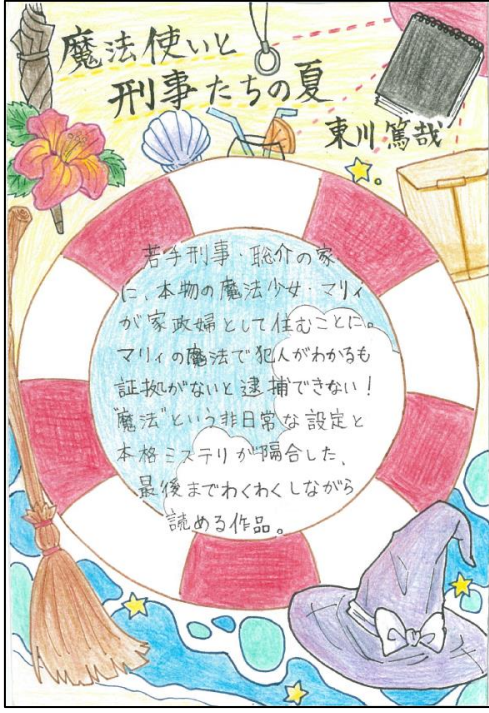 魔法使いと
刑事たちの夏
東川篤哉
若手刑事・聡介の家
に、本物の魔法少女・マリィ
が家政婦として住むことに。
マリィの魔法で犯人がわかるも
証拠がないと逮捕できない!
"魔法"という非日常な設定と
本格ミステリが隔合した、
最後までわくわくしながら
読める作品。